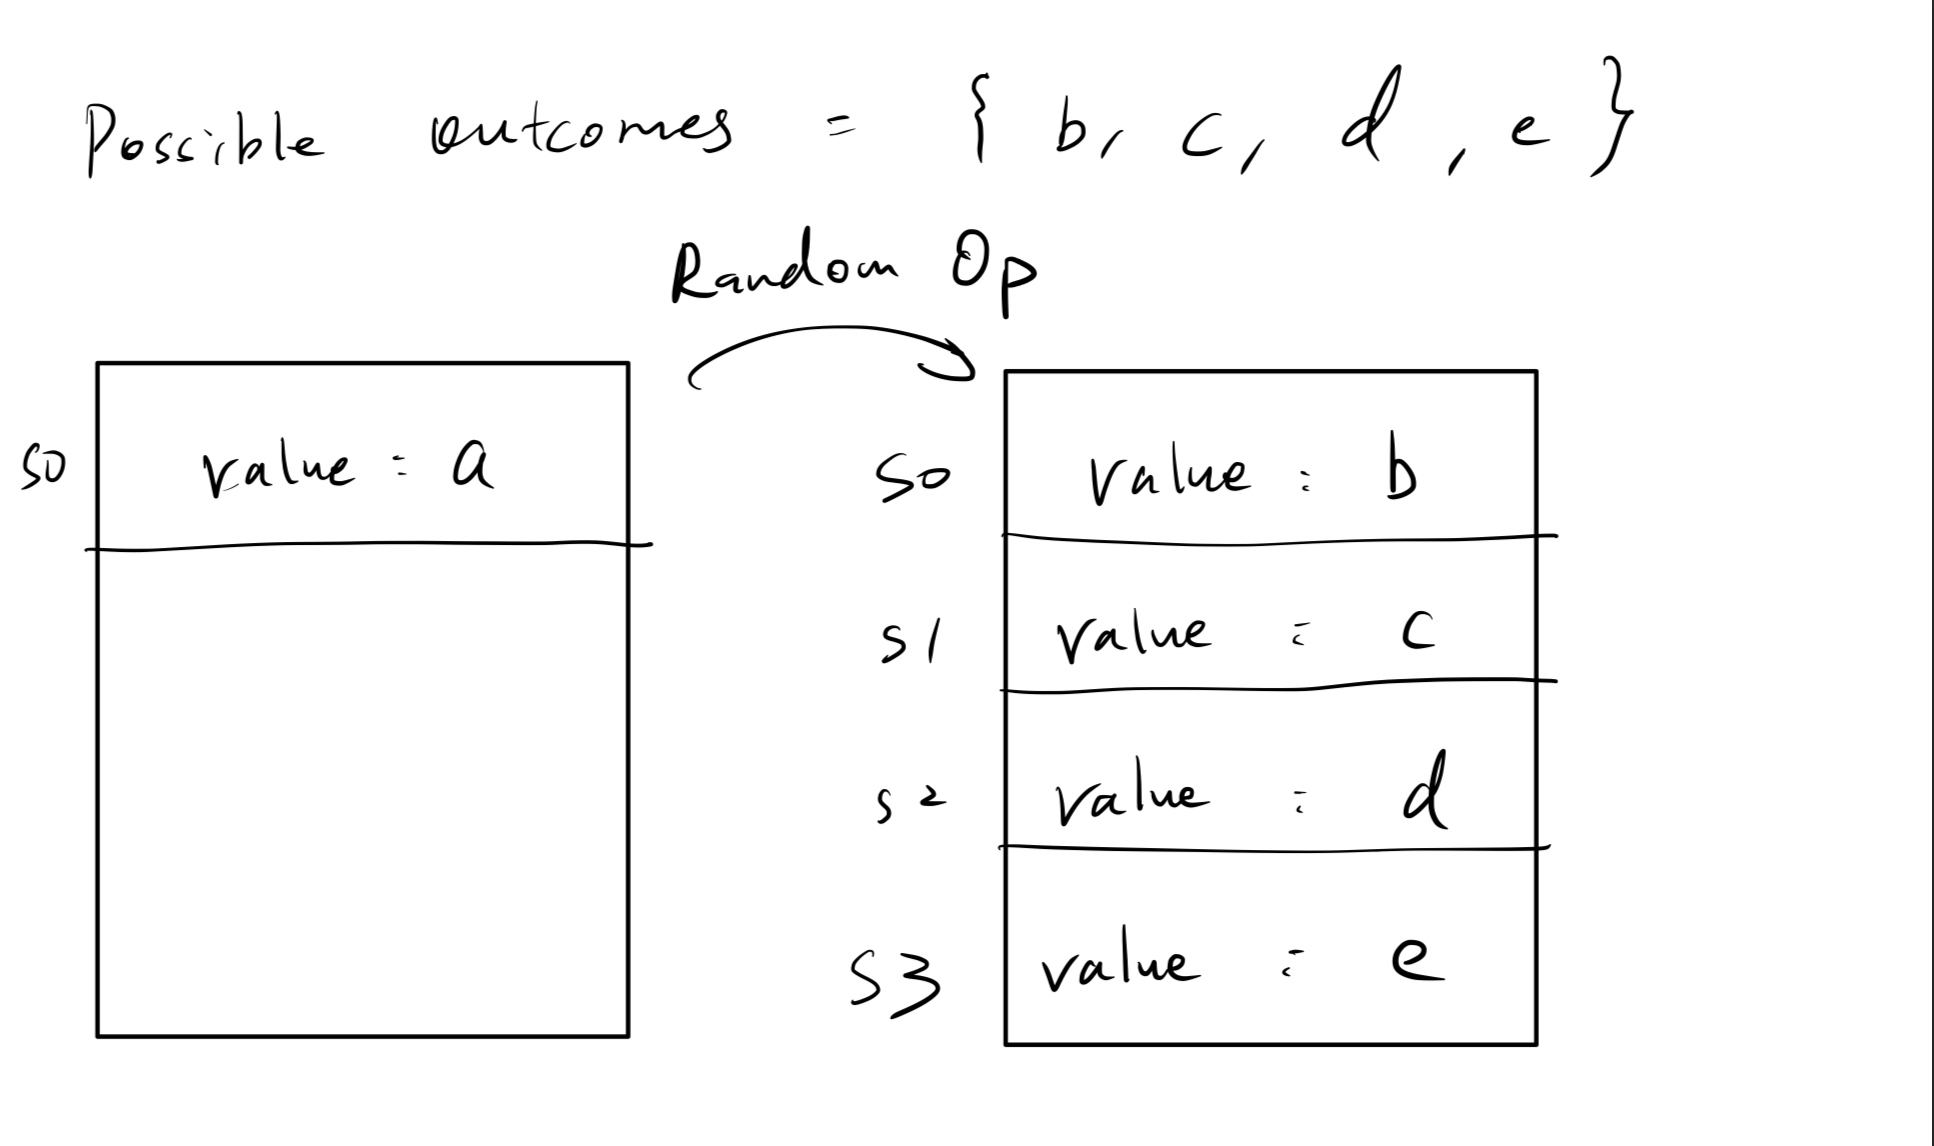 Possible outcomes = { b, c, d, e }
Random Op
s0 value : a
s0 value : b
s1 value : c
s2 value : d
s3 value : e